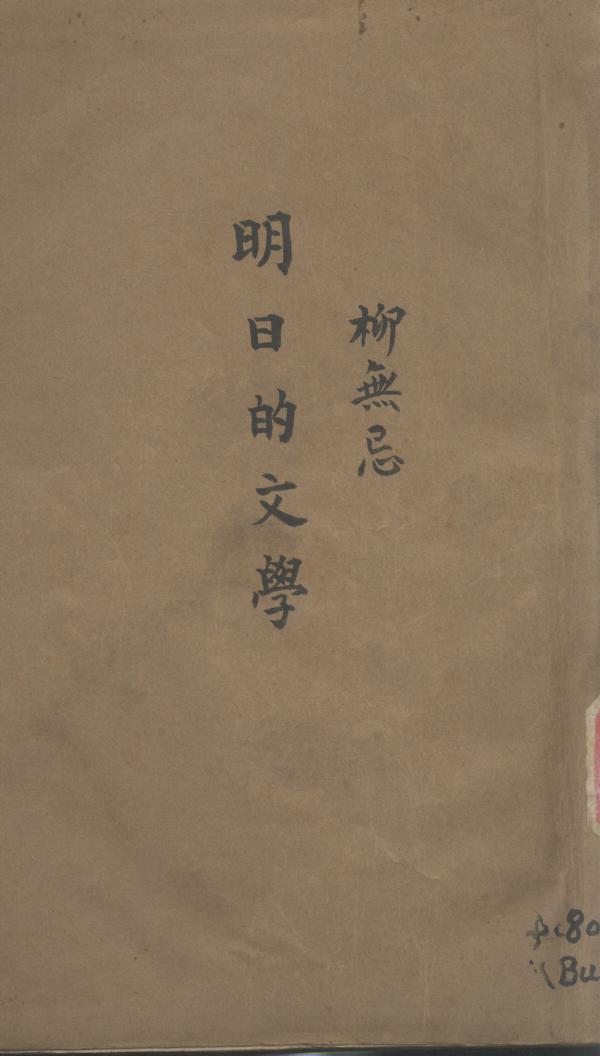 柳無忌
明日的文學
80
Bu